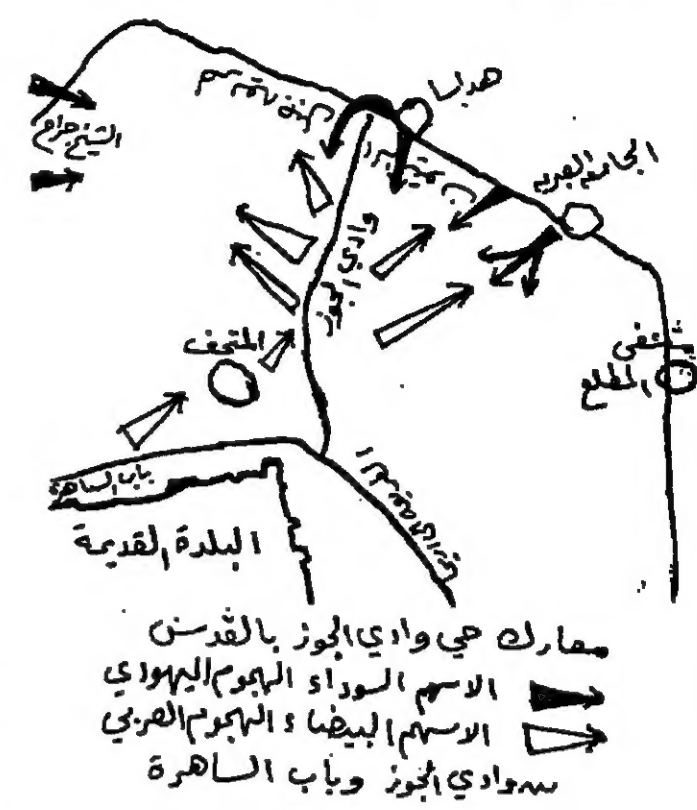 هداسا
الجامعه العبريه
الشيخ جراح
وادي الجوز
المتحف
المطلع
باب الساهرة
البلدة القديمة
معارك حي وادي الجوز بالقدس
الاسهم السوداء الهجوم اليهودي
الاسهم البيضاء الهجوم العربي
من وادي الجوز وباب الساهرة